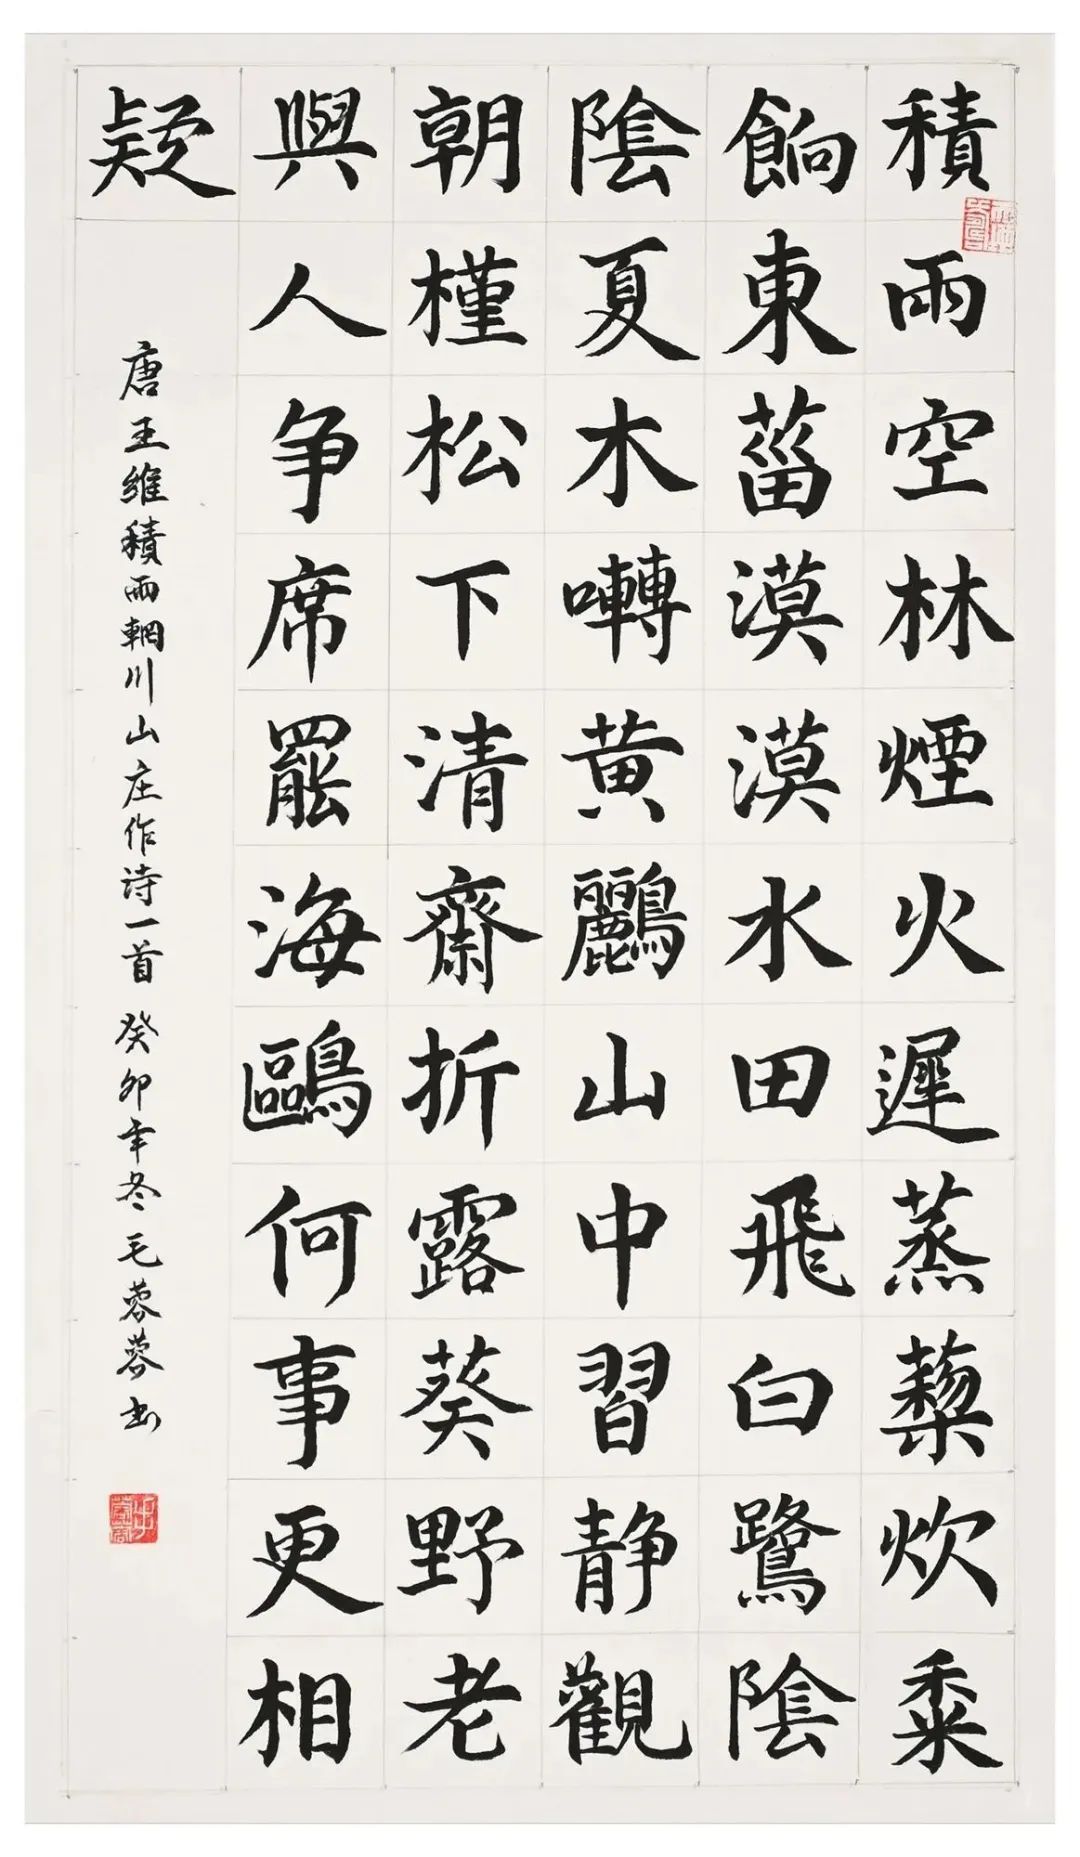 積雨空林煙火遲蒸藜炊黍
餉東菑漠漠水田飛白鷺陰
陰夏木囀黄鸝山中習静觀
朝槿松下清齋折露葵野老
與人争席罷海鷗何事更相
疑
唐王維積雨輞川山庄作诗一首 癸卯年冬毛蓉蓉书